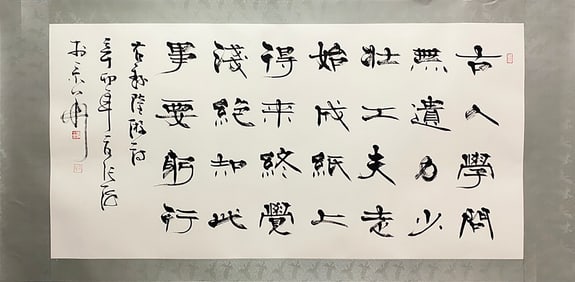 古人學問
無遺力少
壯工夫老
始成紙上
得來終覺
淺絕知此
事要躬行
陸游詩
辛卯年
於京